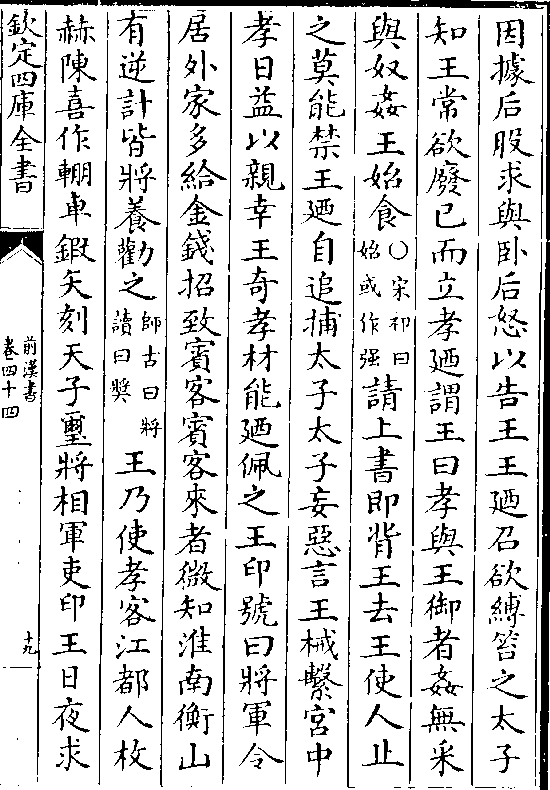 因據后股求與卧后怒以告王王廼召欲縳笞之太子
知王常欲廢已而立孝廼謂王曰孝與王御者姦無采
與奴姦王始食〇宋祁曰始或作强請上書即背王去王使人止
之莫能禁王廼自追捕太子太子妄惡言王械繫宫中
孝日益以親幸王奇孝材能廼佩之王印號曰將軍令
居外家多給金錢招致賓客賓客來者微知淮南衡山
有逆計皆將養勸之師古曰將讀曰奬王乃使孝客江都人枚
赫陳喜作輣車鍜矢刻天子璽將相軍吏印王日夜求
欽定四庫全書
前漢書
卷四十四
十九